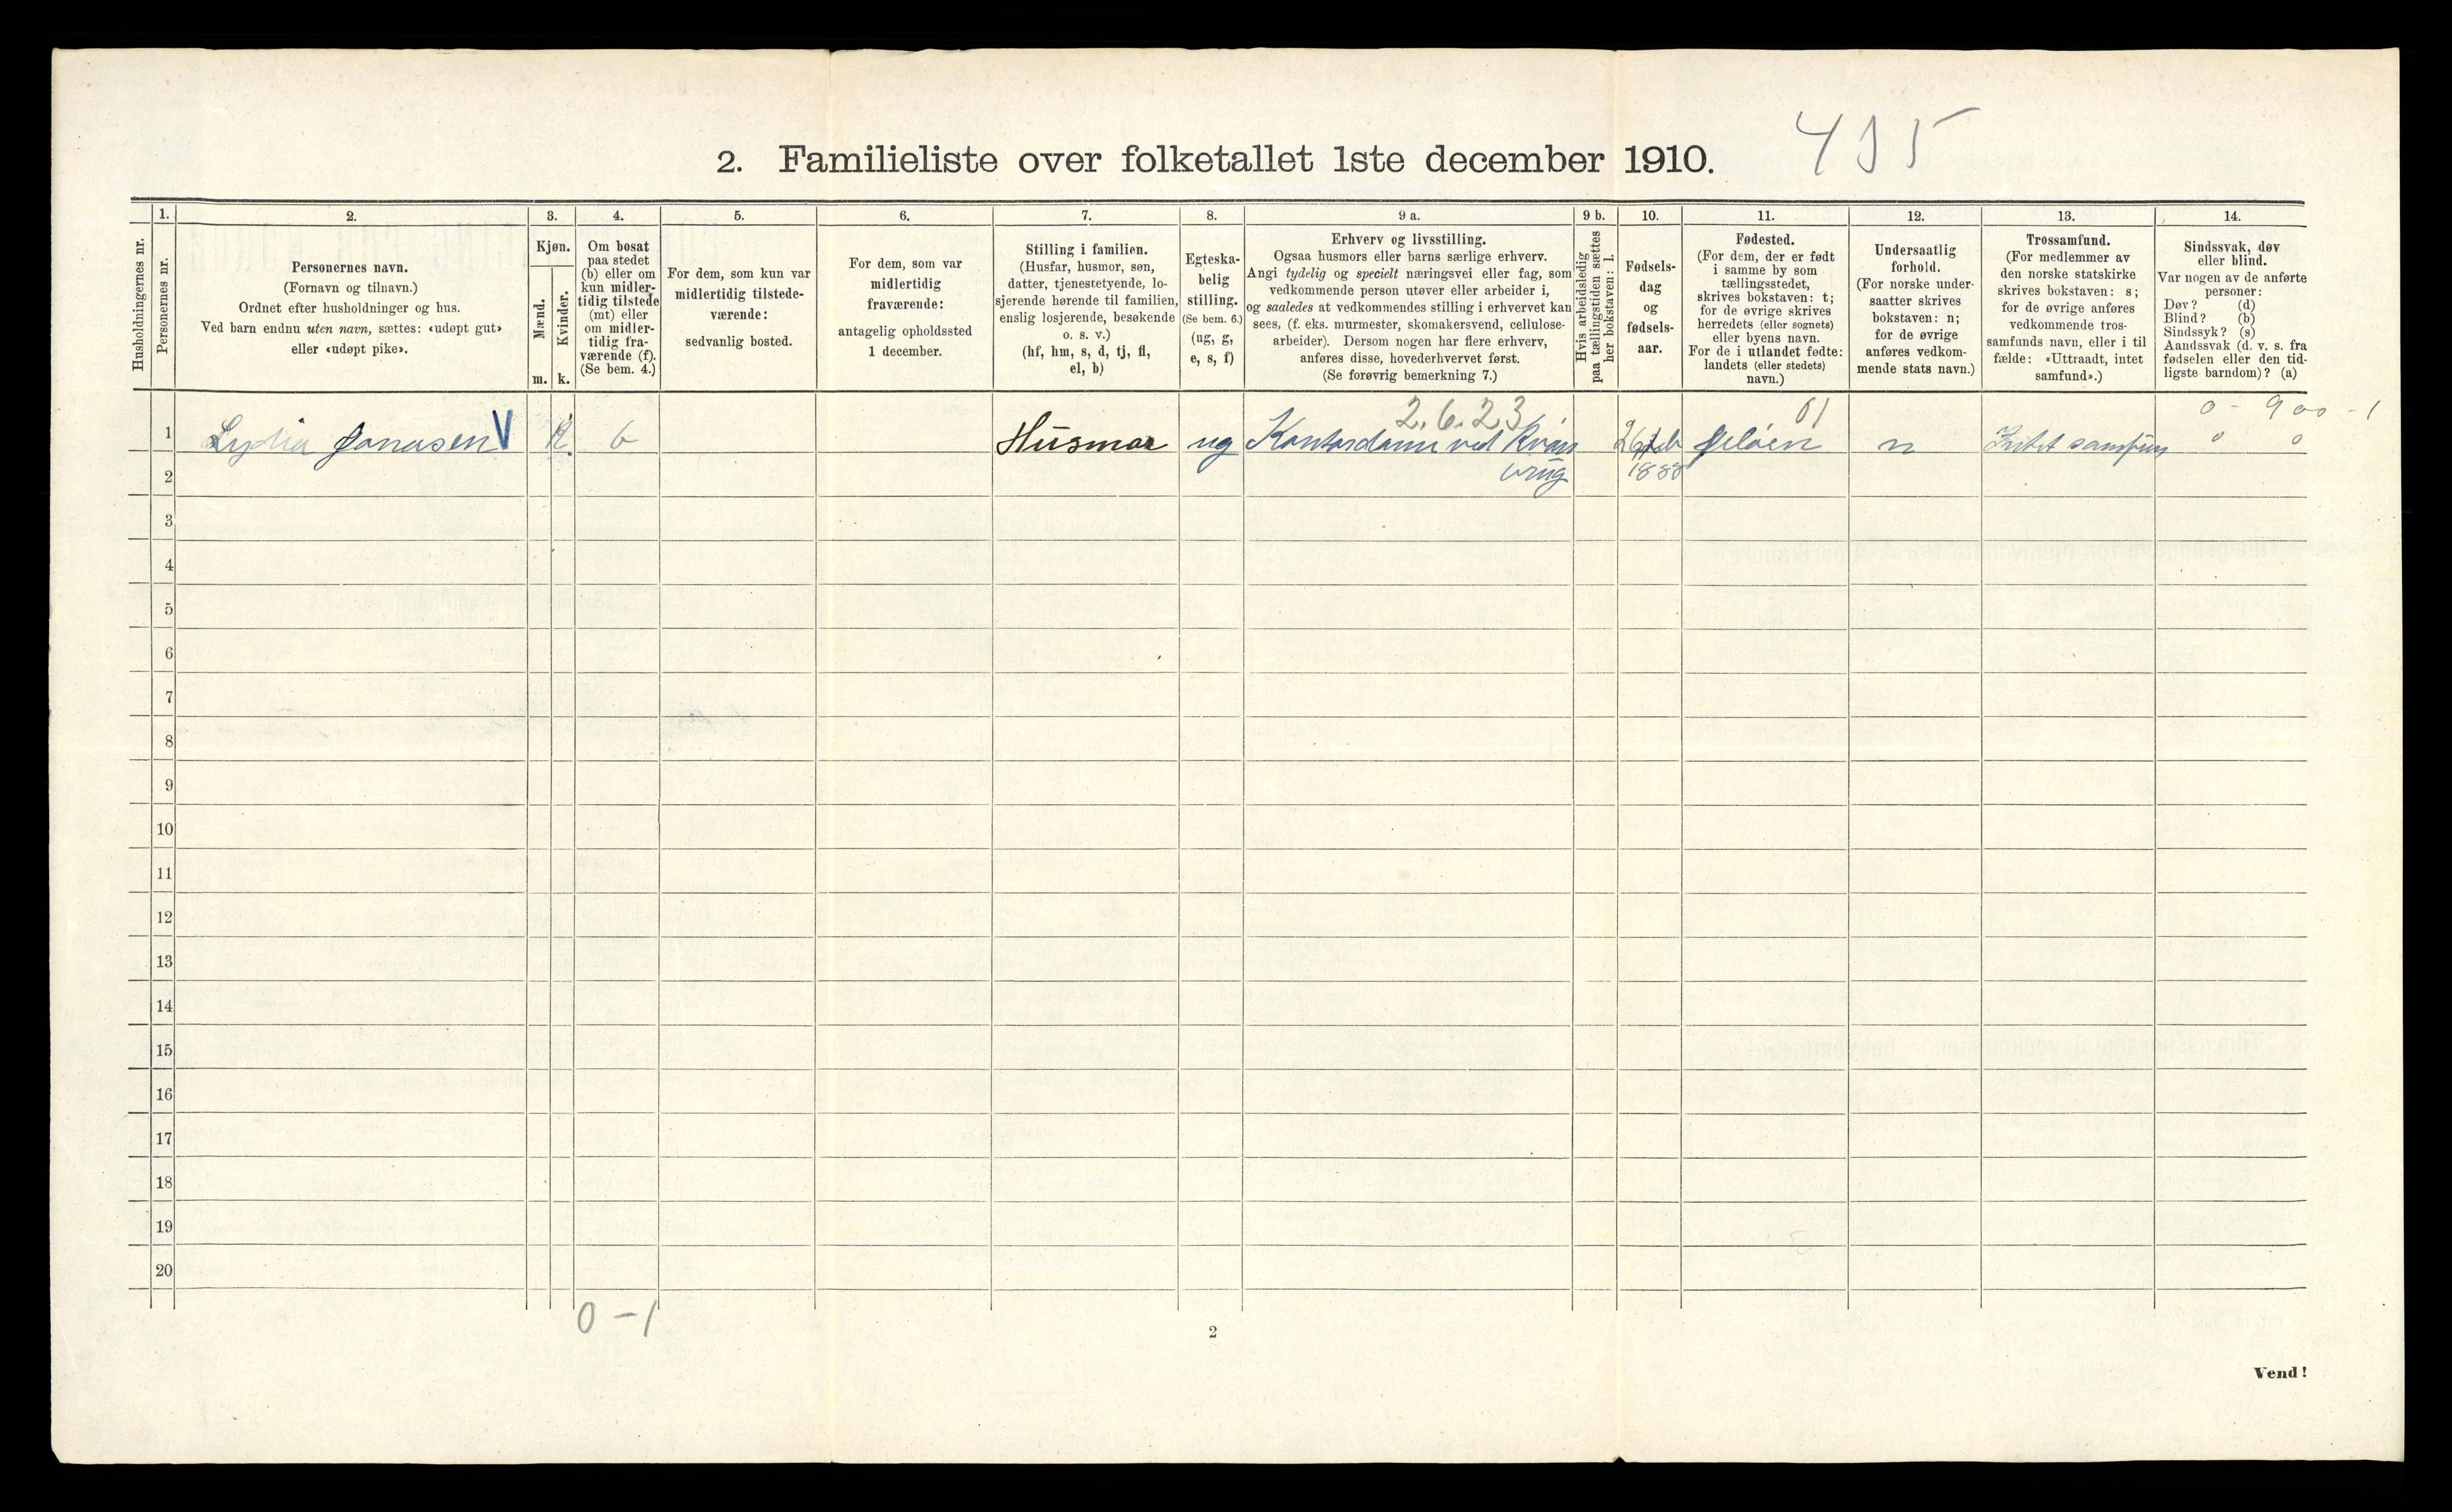 2. Familieliste over folketallet 1ste december 1910.
435
Husholdningernes nr.
1.
Personernes nr.
2.
Personernes navn.
(Fornavn og tilnavn.)
Ordnet efter husholdninger og hus.
Ved barn endnu uten navn, sættes: «udøpt gut»
eller «udøpt pike».
3.
Kjøn.
Mænd.
m.
Kvinder.
k.
4.
Om bosat
paa stedet
(b) eller om
kun midler-
tidig tilstede
(mt) eller
om midler-
tidig fra-
værende (f).
(Se bem. 4.)
5.
For dem, som kun var
midlertidig tilstede-
værende:
sedvanlig bosted.
6.
For dem, som var
midlertidig
fraværende:
antagelig opholdssted
1 december.
7.
Stilling i familien.
(Husfar, husmor, søn,
datter, tjenestetyende, lo-
sjerende hørende til familien,
enslig losjerende, besøkende
o. s. v.)
(hf, hm, s, d, tj, fl,
el, b)
8.
Egteska-
belig
stilling.
(Se bem. 6.)
(ug, g,
e, s, f)
9 a.
Erhverv og livsstilling.
Ogsaa husmors eller barns særlige erhverv.
Angi tydelig og specielt næringsvei eller fag, som
vedkommende person utøver eller arbeider i,
og saaledes at vedkommendes stilling i erhvervet kan
sees, (f. eks. murmester, skomakersvend, cellulose-
arbeider). Dersom nogen har flere erhverv,
anføres disse, hovederhvervet først.
(Se forøvrig bemerkning 7.)
9 b.
Hvis arbeidsledig
paa tællingstiden sættes
her bokstaven: l.
10.
Fødsels-
dag
og
fødsels-
aar.
11.
Fødested.
(For dem, der er født
i samme by som
tællingsstedet,
skrives bokstaven: t;
for de øvrige skrives
herredets (eller sognets)
eller byens navn.
For de i utlandet fødte:
landets (eller stedets)
navn.)
12.
Undersaatlig
forhold.
(For norske under-
saatter skrives
bokstaven: n;
for de øvrige
anføres vedkom-
mende stats navn.)
13.
Trossamfund.
(For medlemmer av
den norske statskirke
skrives bokstaven: s;
for de øvrige anføres
vedkommende tros-
samfunds navn, eller i til
fælde: «Uttraadt, intet
samfund».)
14.
Sindssvak, døv
eller blind.
Var nogen av de anførte
personer:
Døv? (d)
Blind? (b)
Sindssyk? (s)
Aandssvak (d. v. s. fra
fødselen eller den tid-
ligste barndom)? (a)
2.6.23 61 0 - 900 - 1
1 Lydia Jonasen V K. b Husmor ug Kontordame ved 26 feb Jeløen n Intet samfun 0 0
2 brug 1888
3
4
5
6
7
8
9
10
11
12
13
14
15
16
17
18
19
20
0 - 1
2
Vend!